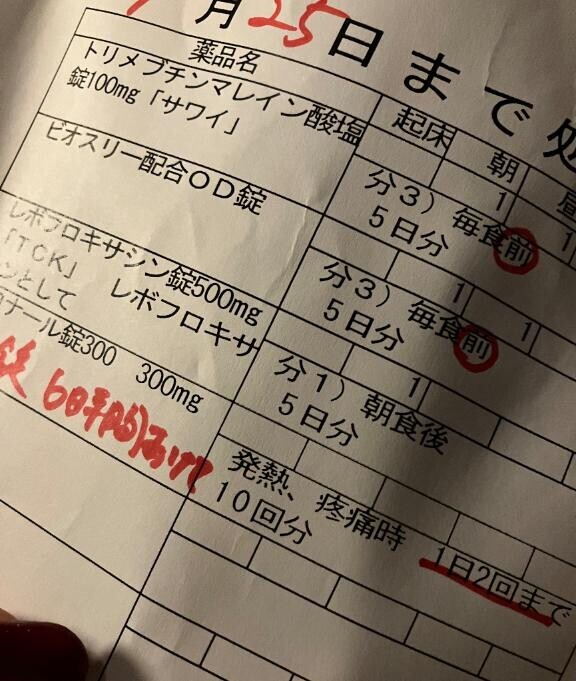 月25日まで処
薬品名
起床 朝 昼
トリメブチンマレイン酸塩
錠100mg「サワイ」
1 1
分3）毎食前
5日分
ビオスリー配合OD錠
1 1
分3）毎食前
5日分
レボフロキサシン錠500mg
「TCK」 レボフロキサ
ンとして
1
分1）朝食後
5日分
ナール錠300 300mg
6時間あけて
発熱、疼痛時 1日2回まで
10回分